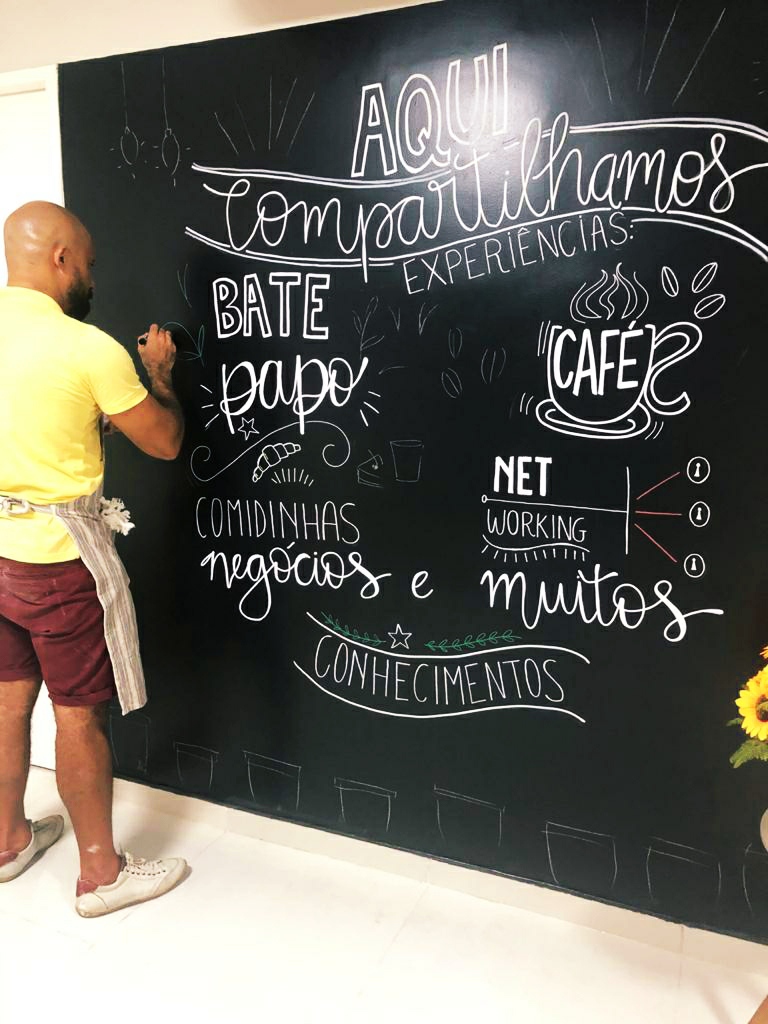 AQUI
compartilhamos
EXPERIÊNCIAS:
BATE
papo
CAFÉ
COMIDINHAS
NET
WORKING
negócios e muitos
CONHECIMENTOS